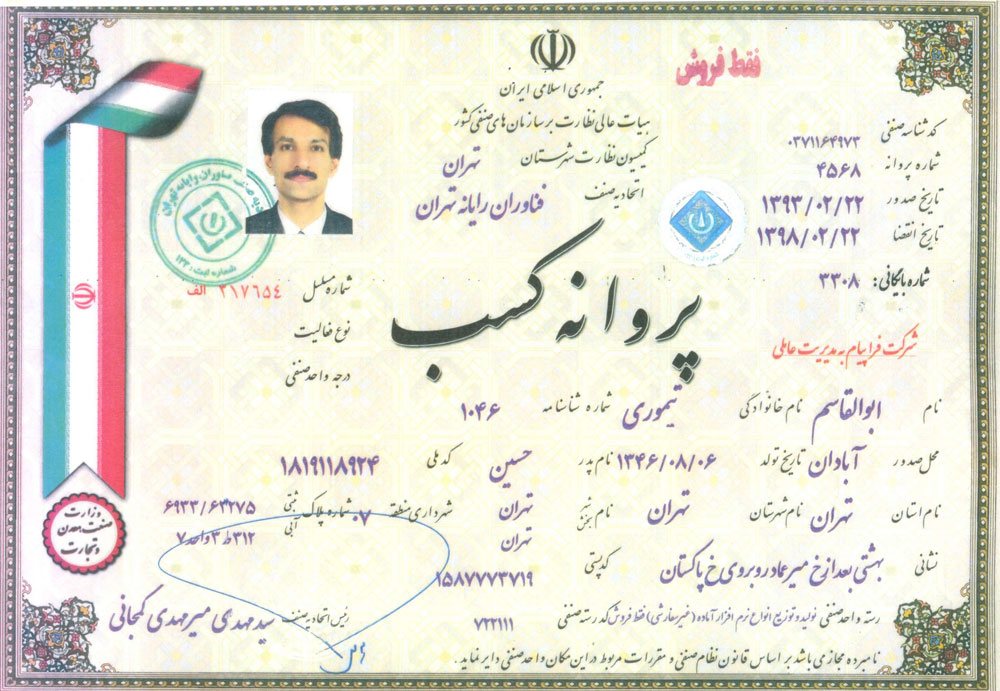 فقط فروش
جمهوری اسلامی ایران
هیات عالی نظارت بر سازمان های صنفی کشور
کمیسیون نظارت شهرستان تهران
اتحادیه صنف فناوران رایانه تهران
کد شناسه صنفی ۰۳۷۱۱۶۴۹۷۳
شماره پروانه ۴۵۶۸
تاریخ صدور ۱۳۹۳/۰۲/۲۲
تاریخ انقضا ۱۳۹۸/۰۲/۲۲
شماره بایگانی: ۳۳۰۸
پروانه کسب
شماره مسلسل ۲۱۷۶۵۴ الف
نوع فعالیت
درجه واحد صنفی
شرکت فرا پیام به مدیریت عاملی
نام ابوالقاسم نام خانوادگی تیموری شماره شناسنامه ۱۰۴۶
محل صدور آبادان تاریخ تولد ۱۳۴۶/۰۸/۰۶ نام پدر حسین کد ملی ۱۸۱۹۱۱۸۹۲۴
نام استان تهران نام شهرستان تهران نام بخش شهر تهران تهران شهرداری منطقه ۰۷ شماره پلاک ثبتی ۶۹۳۳/۶۴۲۷۵
آبی ۳۱۲ ط ۳ واحد ۷
نشانی بهشتی بعد از خ میرعماد روبروی خ پاکستان کد پستی ۱۵۸۷۷۷۳۷۱۹
رسته واحد صنفی تولید و توزیع انواع نرم افزار آماده (غیر سفارشی) فقط فروش کد رسته صنفی ۷۲۲۱۱۱
رئیس اتحادیه صنف سید مهدی میر مهدی کمجانی
نامبرده مجاز می باشد بر اساس قانون نظام صنفی و مقررات مربوط در این مکان واحد صنفی دایر نماید.
وزارت
صنعت، معدن
و تجارت
فناوران رایانه تهران
شماره ثبت: ۱۲۲